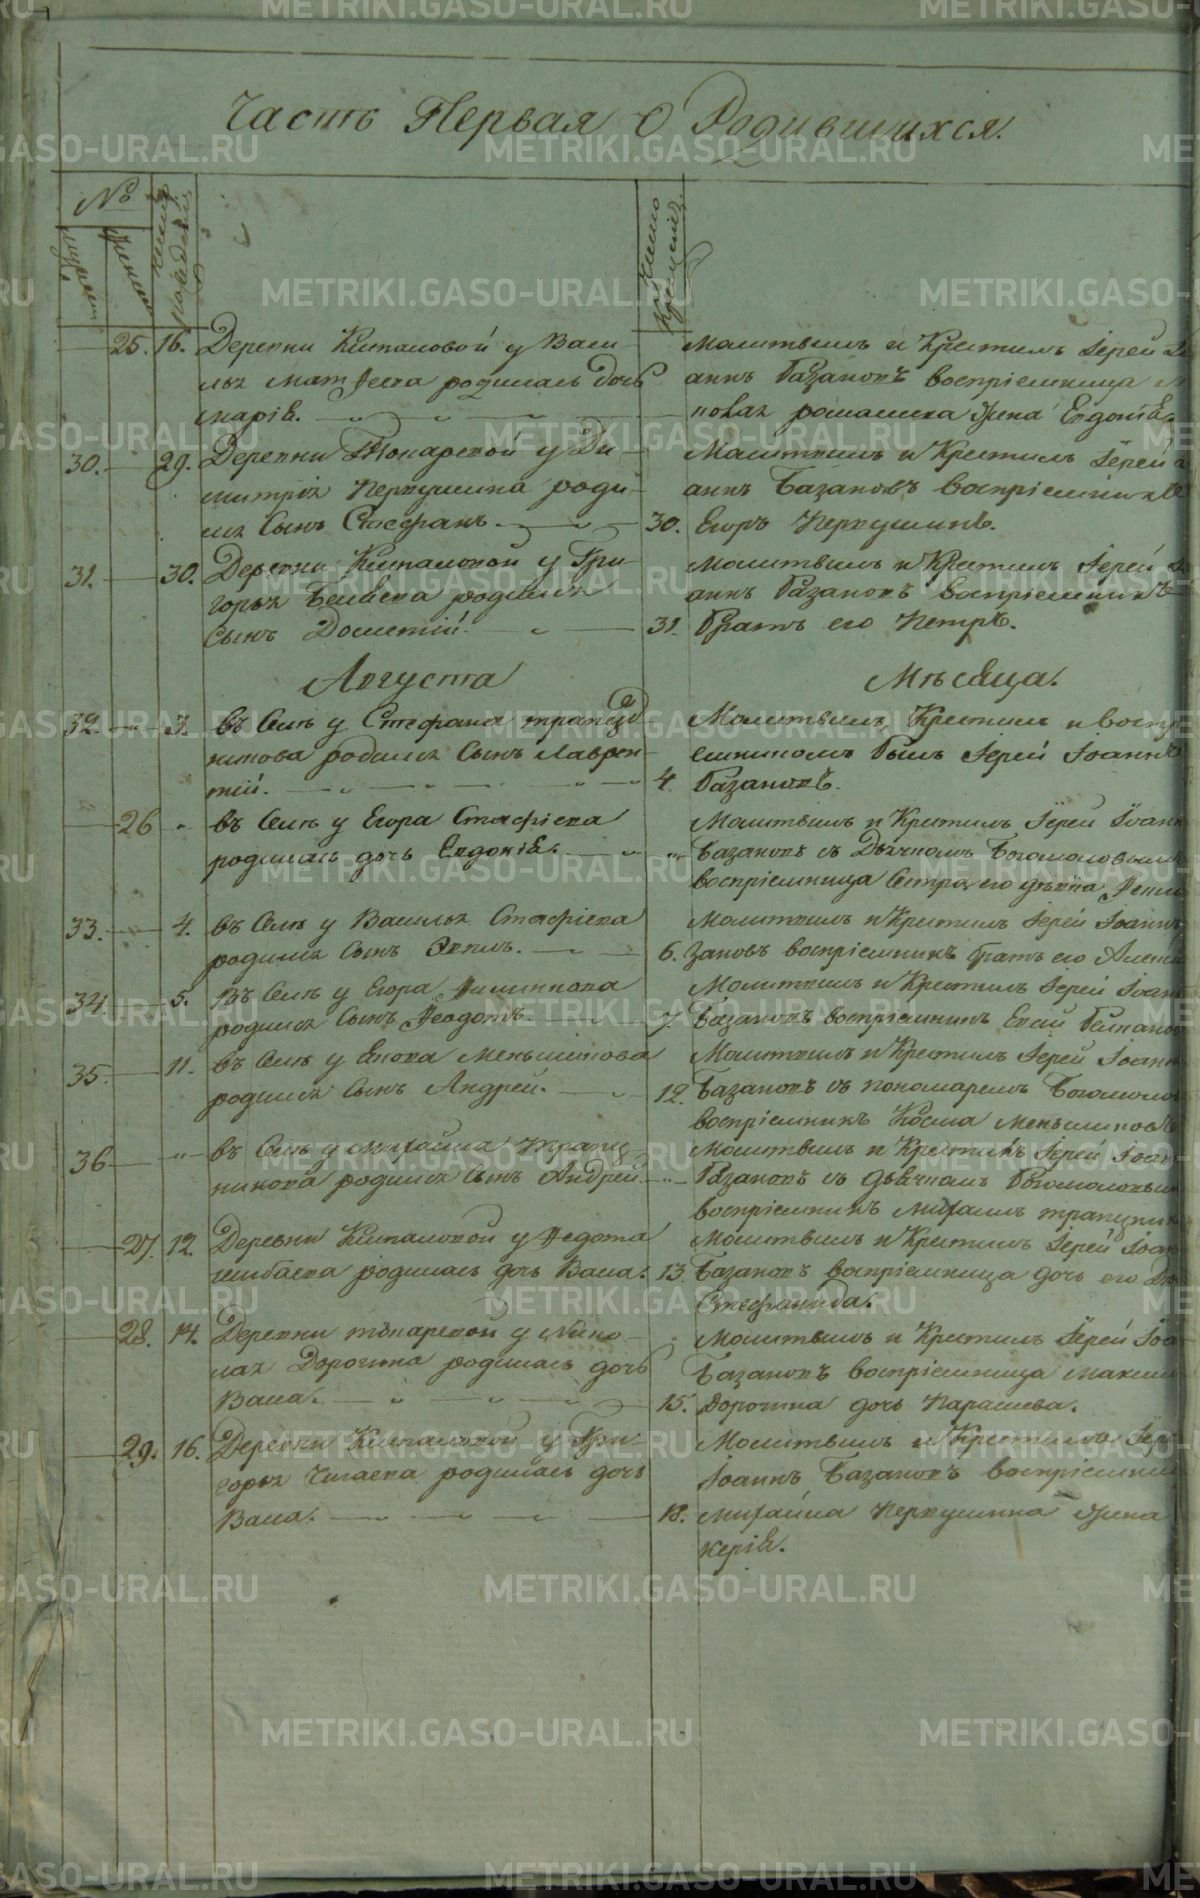 Часть Первая О Родившихся.
№
мужеск
женск
число рожденія
число крещенія
25. 16. Деревни Кипаловой у Васи-
лья Матѳеева родилась дочь
Марія.
Молитвилъ и Крестилъ Іерей Іо
аннъ Базановъ воспріемница
жена Евдокія.
30. 29. Деревни Токарской у Ди-
митрія Первушина роди-
лся Сынъ Стефанъ. 30.
Молитвилъ и Крестилъ Іерей І
аннъ Базановъ воспріемникъ
Егоръ Первушинъ.
31. 30. Деревни Кипаловой у Гри-
горья Беляева родился
Сынъ Дометій. 31.
Молитвилъ и Крестилъ Іерей І
аннъ Базановъ воспріемникъ
братъ его Петръ.
Августа Мѣсяца.
32. 3. въ Селѣ у Стефана трапезд
никова родился Сынъ Лаврен-
тій. 4.
Молитвилъ, Крестилъ и воспр
емникомъ былъ Іерей Іоаннъ
Базановъ.
26 " въ Селѣ у Егора Стафіева
родилась дочь Евдокія. "
Молитвилъ и Крестилъ Іерей Іоанн
Базановъ съ Дьячкомъ Богомоловымъ
воспріемница Сестра его дѣвка
33. 4. въ Селѣ у Василья Стафіева
родился Сынъ 6.
Молитвилъ и Крестилъ Іерей Іоаннъ
зановъ воспріемникъ братъ его Алекс
34. 5. Въ Селѣ у Егора Филиппова
родился Сынъ Ѳеодотъ. 7.
Молитвилъ и Крестилъ Іерей Іоан
Базановъ воспріемникъ
35. 11. въ Селѣ у Меньшикова
родился Сынъ Андрей. 12.
Молитвилъ и Крестилъ Іерей Іоанн
Базановъ съ пономаремъ Богомоло
воспріемникъ Косма Меньшиковъ
36 " въ Селѣ у Михайла Трапез
никова родился Сынъ Андрей. "
Молитвилъ и Крестилъ Іерей Іоан
Базановъ съ дьячкомъ Богомоловым
воспріемникъ Михаилъ трапезник
27. 12. Деревни Кипаловой у Ѳедота
Шибаева родилась дочь Васса. 13.
Молитвилъ и Крестилъ Іерей Іоан
Базановъ воспріемница дочь его
Стефанида.
28. 14. Деревни токарской у Нико-
лая Дорогина родилась дочь
Васса. 15.
Молитвилъ и Крестилъ Іерей Іоа
Базановъ воспріемница Макси
Дорогина дочь Парасева.
29. 16. Деревни Кипаловой у Гри
горья Чигаева родилась дочь
Васса. 18.
Молитвилъ и Крестилъ Іер
Іоаннъ Базановъ воспріемни
Михайла Первушина жена
керія.
METRIKI.GASO-URAL.RU